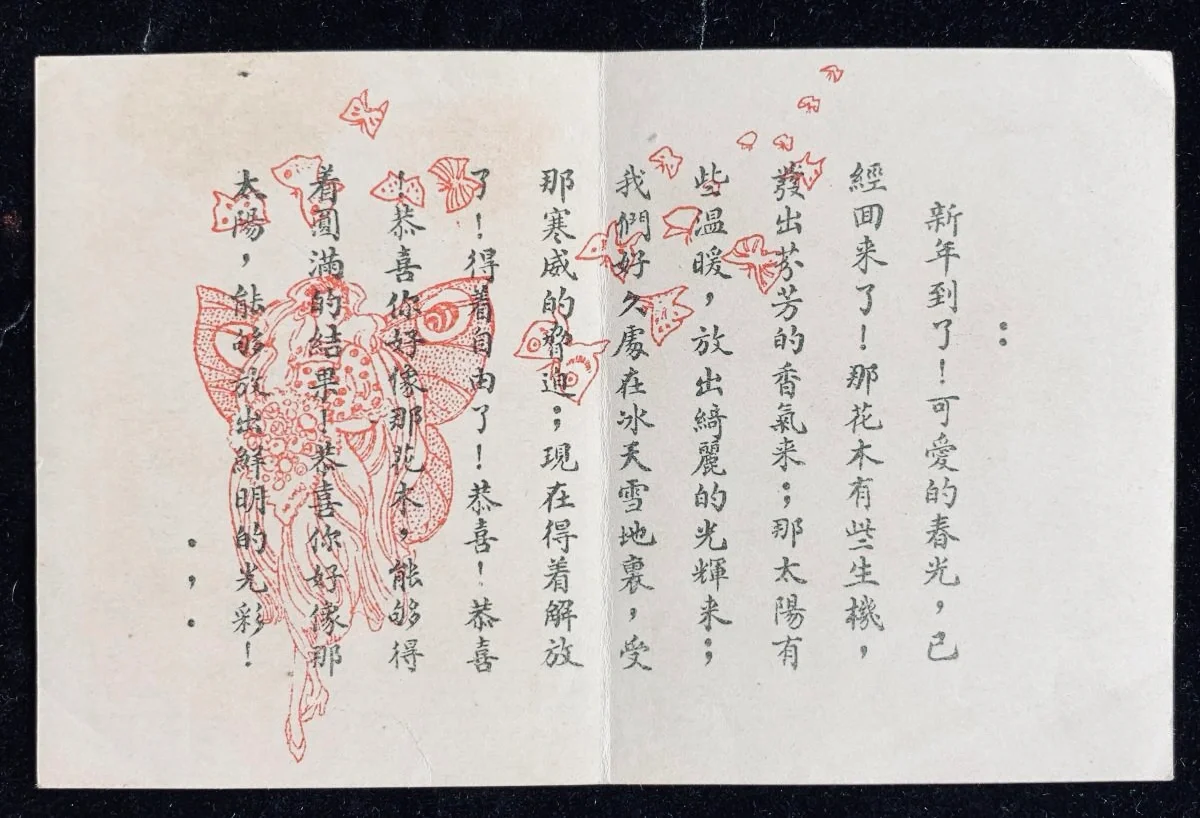 ：
新年到了！可愛的春光，已
經回来了！那花木有些生機，
發出芬芳的香氣来；那太陽有
些温暖，放出綺麗的光輝来；
我們好久處在冰天雪地裏，受
那寒威的脅迫；現在得着解放
了！得着自由了！恭喜！恭喜
！恭喜你好像那花木，能够得
着圓滿的結果！恭喜你好像那
太陽，能够放出鮮明的光彩！